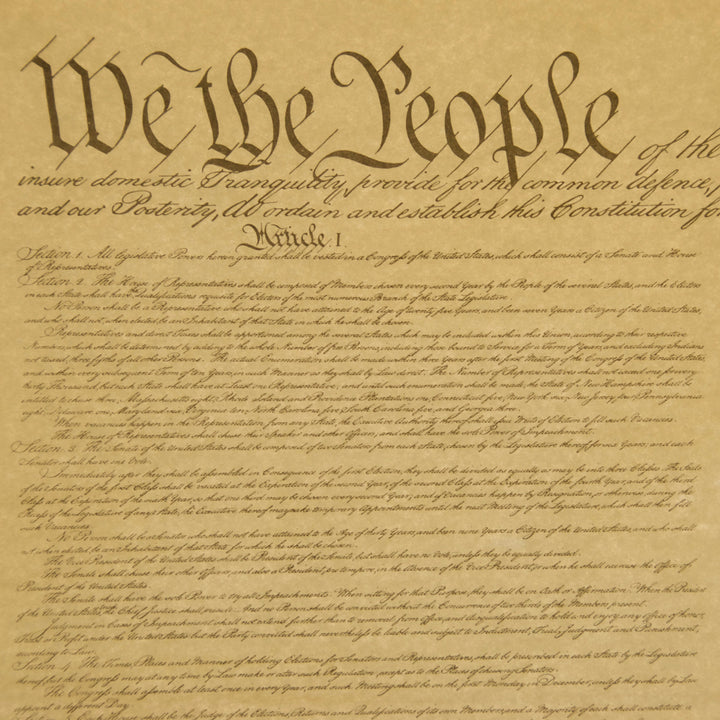 We the People of the
insure domestic Tranquility, provide for the common defence,
and our Posterity, do ordain and establish this Constitution for
Article. I.
Section. 1. All legislative Powers herein granted shall be vested in a Congress of the United States, which shall consist of a Senate and House
of Representatives.
Section. 2. The House of Representatives shall be composed of Members chosen every second Year by the People of the several States, and the Electors
in each State shall have the Qualifications requisite for Electors of the most numerous Branch of the State Legislature.
No Person shall be a Representative who shall not have attained to the Age of twenty five Years, and been seven Years a Citizen of the United States,
and who shall not, when elected, be an Inhabitant of that State in which he shall be chosen.
Representatives and direct Taxes shall be apportioned among the several States which may be included within this Union, according to their respective
Numbers, which shall be determined by adding to the whole Number of free Persons, including those bound to Service for a Term of Years, and excluding Indians
not taxed, three fifths of all other Persons. The actual Enumeration shall be made within three Years after the first Meeting of the Congress of the United States,
and within every subsequent Term of ten Years, in such Manner as they shall by Law direct. The Number of Representatives shall not exceed one for every
thirty Thousand, but each State shall have at Least one Representative; and until such enumeration shall be made, the State of New Hampshire shall be
entitled to chuse three, Massachusetts eight, Rhode Island and Providence Plantations one, Connecticut five, New York six, New Jersey four, Pennsylvania
eight, Delaware one, Maryland six, Virginia ten, North Carolina five, South Carolina five, and Georgia three.
When vacancies happen in the Representation from any State, the Executive Authority thereof shall issue Writs of Election to fill such Vacancies.
The House of Representatives shall chuse their Speaker and other Officers; and shall have the sole Power of Impeachment.
Section. 3. The Senate of the United States shall be composed of two Senators from each State, chosen by the Legislature thereof, for six Years; and each
Senator shall have one Vote.
Immediately after they shall be assembled in Consequence of the first Election, they shall be divided as equally as may be into three Classes. The Seats
of the Senators of the first Class shall be vacated at the Expiration of the second Year, of the second Class at the Expiration of the fourth Year, and of the third
Class at the Expiration of the sixth Year, so that one third may be chosen every second Year; and if Vacancies happen by Resignation, or otherwise, during the
Recess of the Legislature of any State, the Executive thereof may make temporary Appointments until the next Meeting of the Legislature, which shall then fill
such Vacancies.
No Person shall be a Senator who shall not have attained to the Age of thirty Years, and been nine Years a Citizen of the United States, and who shall
not, when elected, be an Inhabitant of that State for which he shall be chosen.
The Vice President of the United States shall be President of the Senate, but shall have no Vote, unless they be equally divided.
The Senate shall chuse their other Officers, and also a President pro tempore, in the Absence of the Vice President, or when he shall exercise the Office of
President of the United States.
The Senate shall have the sole Power to try all Impeachments. When sitting for that Purpose, they shall be on Oath or Affirmation. When the President
of the United States the Chief Justice shall preside: And no Person shall be convicted without the Concurrence of two thirds of the Members present.
Judgment in Cases of Impeachment shall not extend further than to removal from Office, and disqualification to hold and enjoy any Office of honor,
Trust or Profit under the United States: but the Party convicted shall nevertheless be liable and subject to Indictment, Trial, Judgment and Punishment,
according to Law.
Section. 4. The Times, Places and Manner of holding Elections for Senators and Representatives, shall be prescribed in each State by the Legislature
thereof; but the Congress may at any time by Law make or alter such Regulations, except as to the Places of chusing Senators.
The Congress shall assemble at least once in every Year, and such Meeting shall be on the first Monday in December, unless they shall by Law
appoint a different Day.
House shall be the Judge of the Elections, Returns and Qualifications of its own Members, and a Majority of each shall constitute a